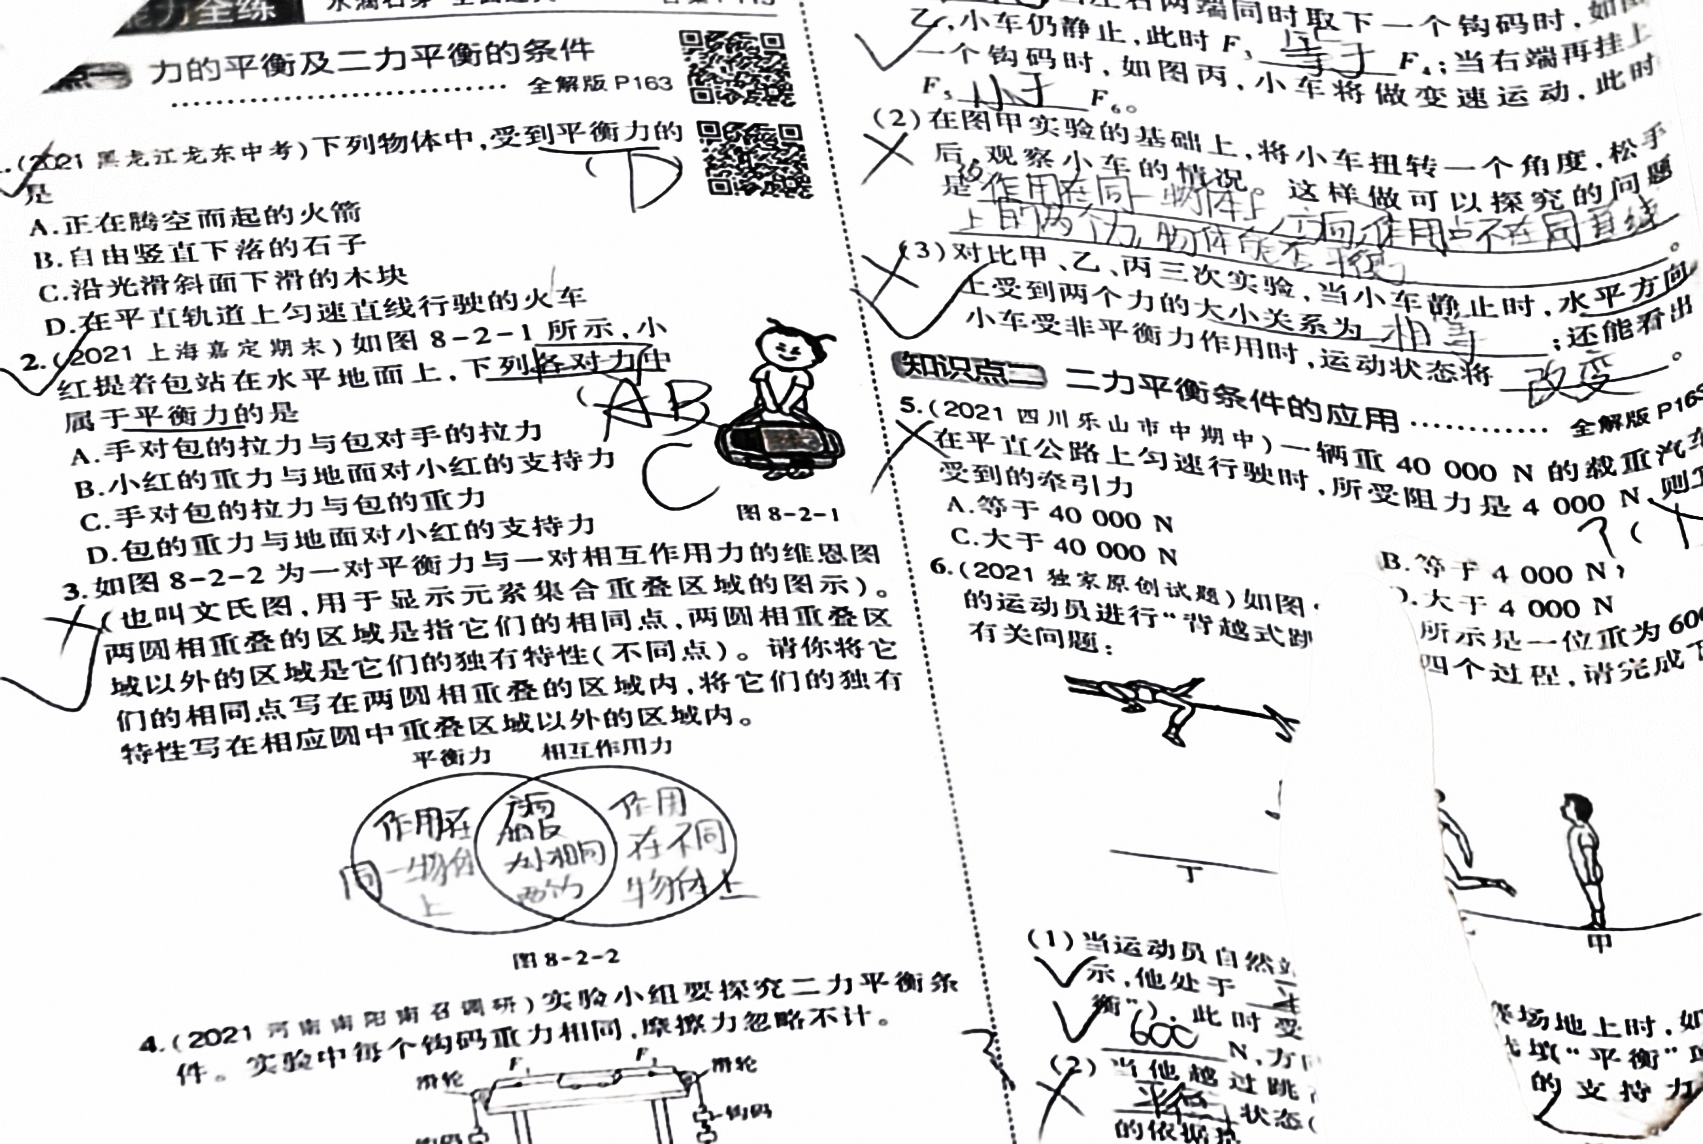 力全练
力的平衡及二力平衡的条件
全解版 P163
(2021 黑龙江龙东中考)下列物体中,受到平衡力的
是
(D
A.正在腾空而起的火箭
B.自由竖直下落的石子
C.沿光滑斜面下滑的木块
D.在平直轨道上匀速直线行驶的火车
2.(2021 上海嘉定期末)如图 8-2-1 所示,小
红提着包站在水平地面上,下列各对力中
属于平衡力的是
(AB
C
A.手对包的拉力与包对手的拉力
B.小红的重力与地面对小红的支持力
C.手对包的拉力与包的重力
D.包的重力与地面对小红的支持力
图 8-2-1
3.如图 8-2-2 为一对平衡力与一对相互作用力的维恩图
(也叫文氏图,用于显示元素集合重叠区域的图示)。
两圆相重叠的区域是指它们的相同点,两圆相重叠区
域以外的区域是它们的独有特性(不同点)。请你将它
们的相同点写在两圆相重叠的区域内,将它们的独有
特性写在相应圆中重叠区域以外的区域内。
平衡力 相互作用力
作用在
同一物体
上
方向
相反
大小相同
作用
在不同
物体上
图 8-2-2
4.(2021 河南南阳南召调研)实验小组要探究二力平衡条
件。实验中每个钩码重力相同,摩擦力忽略不计。
滑轮 滑轮
钩码
乙,小车仍静止,此时 F₃ 等于 F₄;当右端再挂上
一个钩码时,如图丙,小车将做变速运动,此时
F₅ 小于 F₆。
(2)在图甲实验的基础上,将小车扭转一个角度,松手
后,观察小车的情况。这样做可以探究的问题
是 作用在同一物体上
上的两个力,物体能否平衡。
(3)对比甲、乙、丙三次实验,当小车静止时,水平方向
上受到两个力的大小关系为 相等 ;还能看出
小车受非平衡力作用时,运动状态将 改变 。
知识点二 二力平衡条件的应用
全解版 P163
5.(2021 四川乐山市中期中)一辆重 40 000 N 的载重汽车
在平直公路上匀速行驶时,所受阻力是 4 000 N,则
受到的牵引力
A.等于 40 000 N
B.等于 4 000 N
C.大于 40 000 N
D.大于 4 000 N
6.(2021 独家原创试题)如图
所示是一位重为 600
的运动员进行“背越式跳
四个过程,请完成下
有关问题:
丁
甲
(1)当运动员自然
场地上时,如
示,他处于
填“平衡”
衡”),此时受
的支持力
600 N,方向
(2)当他越过跳
平衡 状态(
的依据是